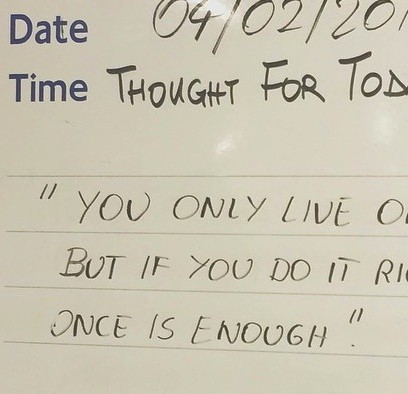 Date 04/02/201
Time THOUGHT FOR TOD
" YOU ONLY LIVE O
BUT IF YOU DO IT RI
ONCE IS ENOUGH".